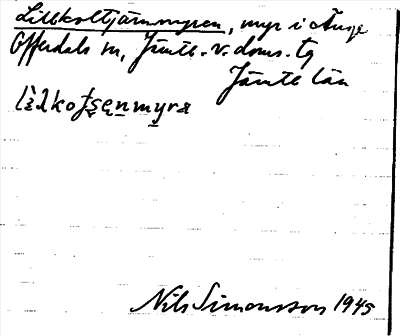 Lillkoltjärnmyren, myr i Ånge
Offerdals sn, Jämtl. v. doms. tg
Jämtl län
Nils Simonsson 1945